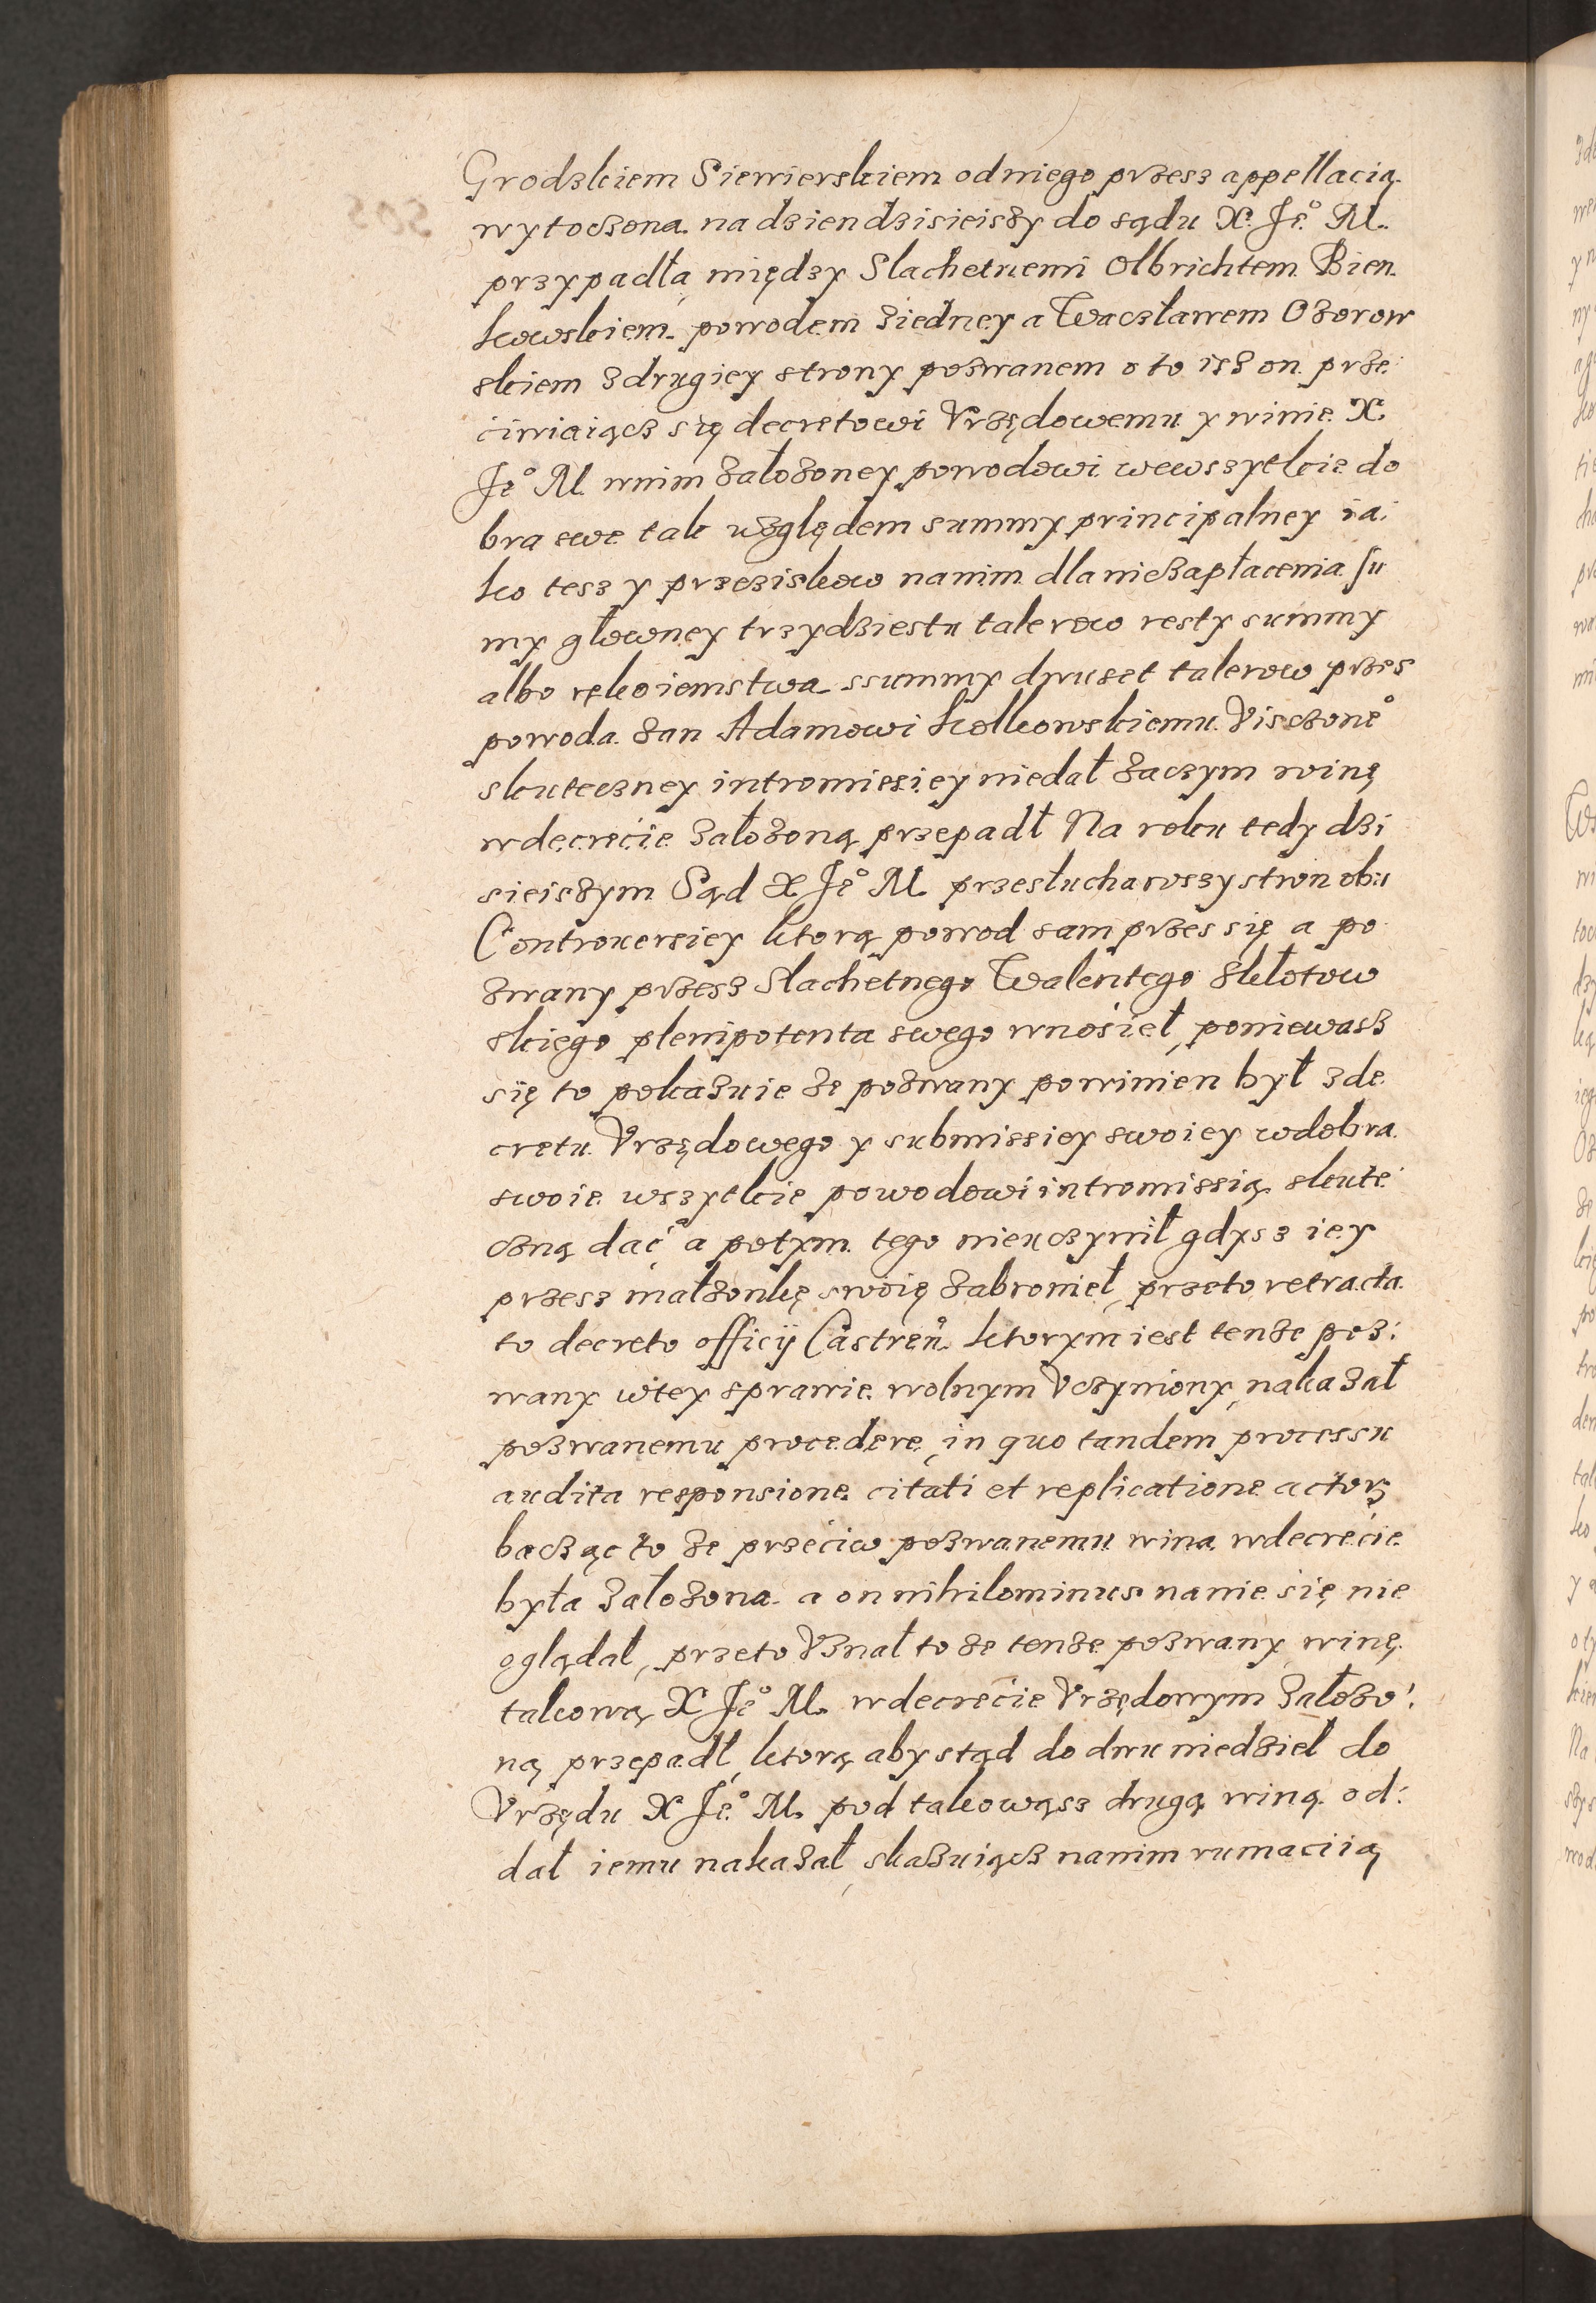 Grodzkiem Siewierskiem od niego przesz appellacią
wytoczona na dzien dzisieiszy do sądu X. Je͛º M.
przypadła, między Slachetnemi Olbrichtem Bien
kowskiem powodem ziedney a Waczławem Ozorow
skiem zdrugiey strony pozwanem o to isz on prze
ciwiaiącz się decretowi Vrzędowemu y winie X.
Jeº M. wnim założoney powodowi wewszytkie do
bra swe tak względem summy principalney ia:
ko tesz y przeziskow nanim dla niezapłacenia su
my głowney trzydziestu talerow resty summy
albo rękoiemstwa ssummy dwuset talerow przes
powoda zan Adamowi Kołkowskiemu Visczoneº
skuteczney intromissiey niedał zaczym winę
wdecrecie założoną przepadł Na roku tedy dzi
sieiszym Sąd X Jeº M. przesłuchawszy stron obu
Controuersiey ktorą powod sam przes się a po
zwany przesz Slachetnego Walentego Skłotow
skiego plenipotenta swego wnosieł, poniewasz
się to pokazuie ze pozwany powinien był zde
cretu Vrzędowego y submissiey swoiey wdobra
swoie wszytkie powodowi intromissią skute
czną dać a potym tego nieuczynił gdysz iey
przesz małzonkę swoię zabronieł, przeto retracta
to decreto officij Castreñ. ktorym iest tenze poz:
wany wtey sprawie wolnym Vczyniony, nakazał
pozwanemu procedere, in quo tandem processu
audita responsione citati et replicatione actorz
bacząc to ze przeciw pozwanemu wina wdecrecie
była założona a on nihilominus nanie się nie
oglądał, przeto Vznał to ze tenze pozwany winę
takową X Jeº M. wdecrecie Vrzędowym założo:
ną przepadł, ktorą aby stąd do dwu niedziel do
Vrzędu X Jeº M. pod takowąsz drugą winą od:
dał iemu nakazał, skazuiącz nanim rumaciią